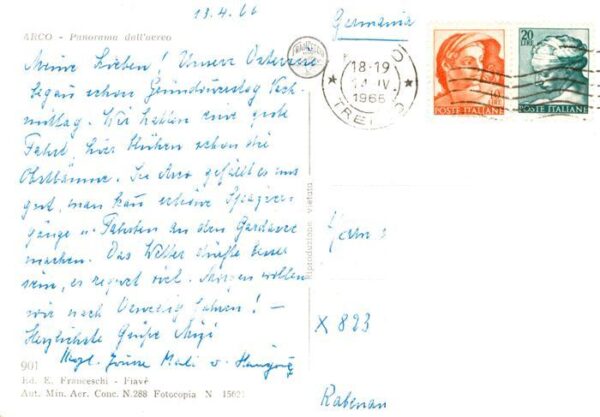 13.4.66
Germania
ARCO - Panorama dall'aereo
Meine Lieben! Unsere Osterreise
begann schon Gründonnerstag Nach-
mittag. Wir hatten eine gute
Fahrt, hier blühen schon die
Obstbäume. In Arco gefällt es uns
gut, man kann schöne Spazier-
gänge u. Fahrten an den Gardasee
machen. Das Wetter dürfte besser
sein, es regnet viel. Morgen wollen
wir nach Venedig fahren! -
Herzlichste Grüße
901
Ed. E. Franceschi - Fiavé
Aut. Min. Aer. Conc. N.288 Fotocopia N 15621
Riproduzione Vietata
18-19
14 IV
1966
TRENTO
10 LIRE
POSTE ITALIANE
20 LIRE
POSTE ITALIANE
X 823
Rabenau